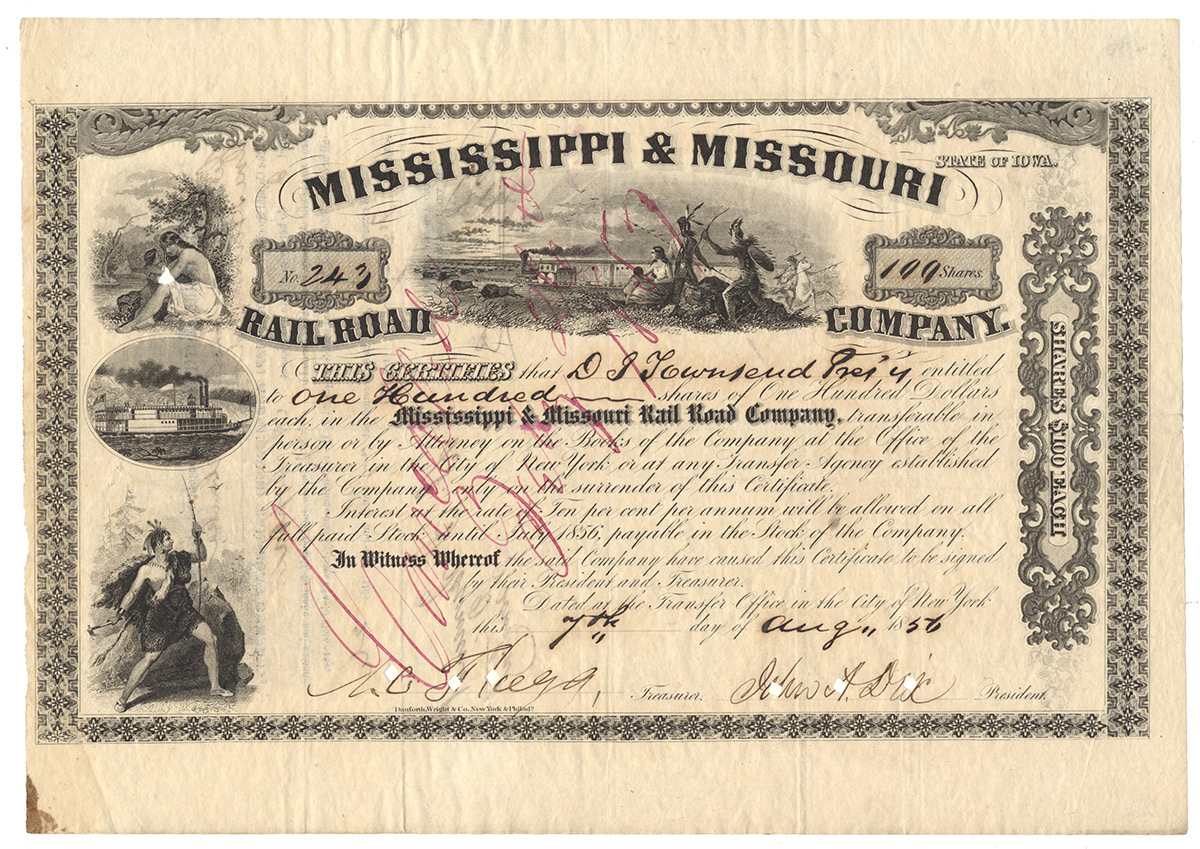 MISSISSIPPI & MISSOURI
STATE OF IOWA.
No. 243
100 Shares.
RAIL ROAD COMPANY.
SHARES $100 EACH
THIS CERTIFIES that D J Townsend Pres't is entitled
to One Hundred shares of One Hundred Dollars
each, in the Mississippi & Missouri Rail Road Company, transferable in
person or by Attorney on the Books of the Company at the Office of the
Treasurer in the City of New York or at any Transfer Agency established
by the Company only on the surrender of this Certificate.
Interest at the rate of Ten per cent per annum will be allowed on all
full paid Stock until July 1856, payable in the Stock of the Company.
In Witness Whereof the said Company have caused this Certificate to be signed
by their President and Treasurer.
Dated at the Transfer Office in the City of New York
this 7th day of Aug 1856
Treasurer. John A Dix President.
Danforth, Wright & Co. New York & Philadª